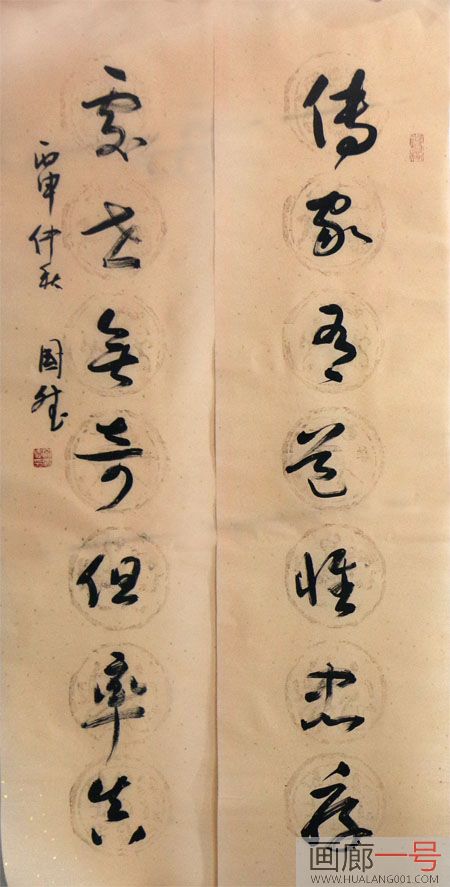 傳家有道惟忠厚
處世無奇但率真
丙申仲秋 國
画廊一号
WWW.HUALANG001.COM